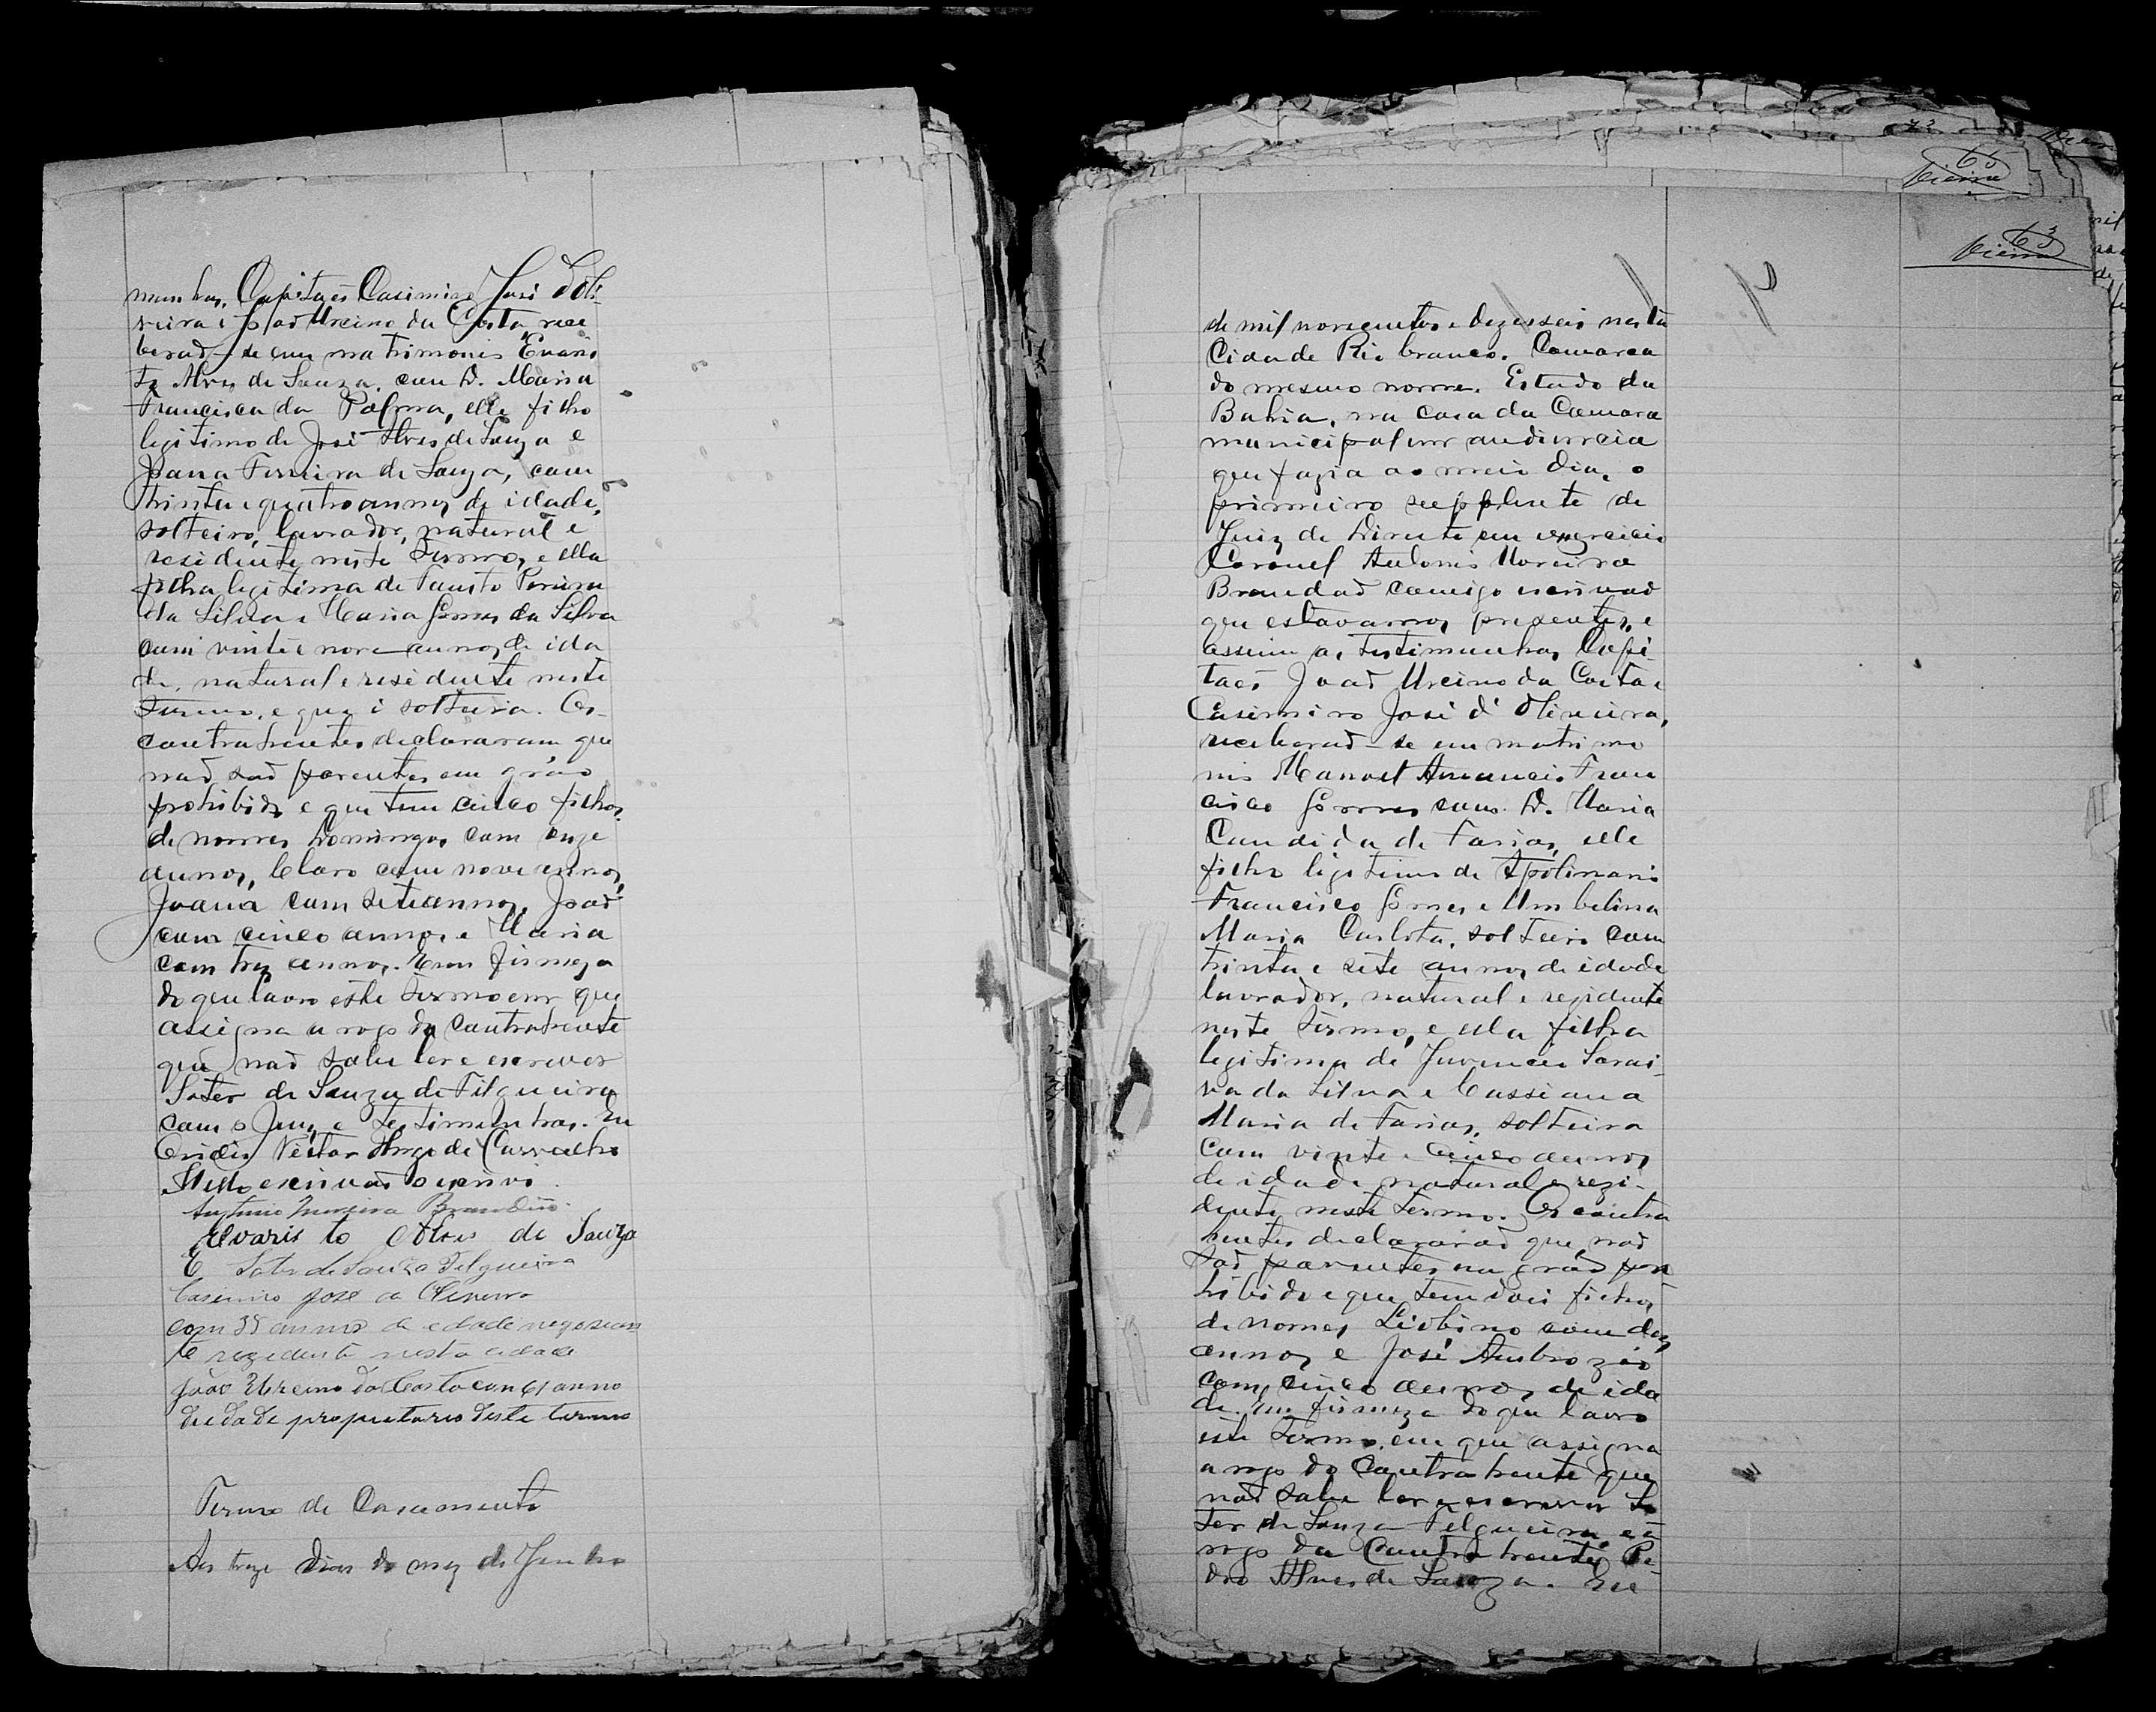 munhas, Capitaes Casimiro José d'Oli-
veira e João Urcino da Costa, rece
berad-se em matrimonio Evaris
to Alves de Souza, com D. Maria
Francisca da Palma, elle filho
legitimo de José Alves de Souza e
Joana Ferreira de Souza, com
trinta e quatro annos de idade,
solteiro, lavrador, natural e
residente neste termo, e ella
filha legitima de Fausto Pereira
da Silva e Maria Gomes da Silva
com vinte e nove annos de ida
de, natural e residente neste
termo, e que é solteira. Os
contrahentes declararam que
nad sad parentes em gráo
prohibido e que tem cinco filhos
de nomes Domingos com onze
annos, Claro com nove annos,
Joana com sete annos, Joad
com cinco annos, e Maria
com trez annos. Em firmeza
do que lavro este termo em que
assigna a rogo da contrahente
que nad sabe ler e escrever
Soter de Souza de Filgueira
com o Juiz e testimunhas. Eu
Victor Hugo de Carvalho
escrivad o escrevi.
Antonio Moreira Brandão
Evaristo Alves de Souza
Soter de Souza Felgueira
Casimiro José de Oliveira
com 35 annos de edade negosian
te rezidente nesta cidade
João Urcino da Costa con 61 anno
de edade propietario deste termo
Termo de Casamento
Aos treze dias do mez de Junho
63
Vieira
63
Vieira
de mil novecentos e dezesseis nesta
Cidade Rio branco. Comarca
do mesmo nome. Estado da
Bahia, na casa da Camara
municipal em audiencia
que fazia ao meio dia, o
primeiro supplente de
Juiz de Direito em exercicio
Coronel Antonio Moreira
Brandad comigo escrivad
que estavamos presentes, e
assim as testimunhas Capi-
taes Joad Urcino da Costa e
Casimiro José d'Oliveira,
receberad-se em matrimo
nio Manoel Amancio Fran
cisco Gomes com D. Maria
Candida de Farias, elle
filho legitimo de Apolinario
Francisco Gomes e Umbelina
Maria Carlota, solteiro com
trinta e sete annos de idade
lavrador, natural e rezidente
neste termo, e ella filha
legitima de Juvencio Sarai-
va da Silva e Cassiana
Maria de Farias, solteira
com vinte e cinco annos
de idade natural e rezi-
dente neste termo. Os contra
hentes declararad que nad
sad parentes em grad pro
hibido e que tem dois filhos
de nomes Liobino com dez
annos e José Ambrozio
com cinco annos de ida
de. Em firmeza do que lavro
este termo, em que assigna
a rogo do contrahente que
nad sabe ler e escrever So
ter de Souza Felgueira e a
rogo da Contrahente Pe-
dro Alves de Souza. Eu